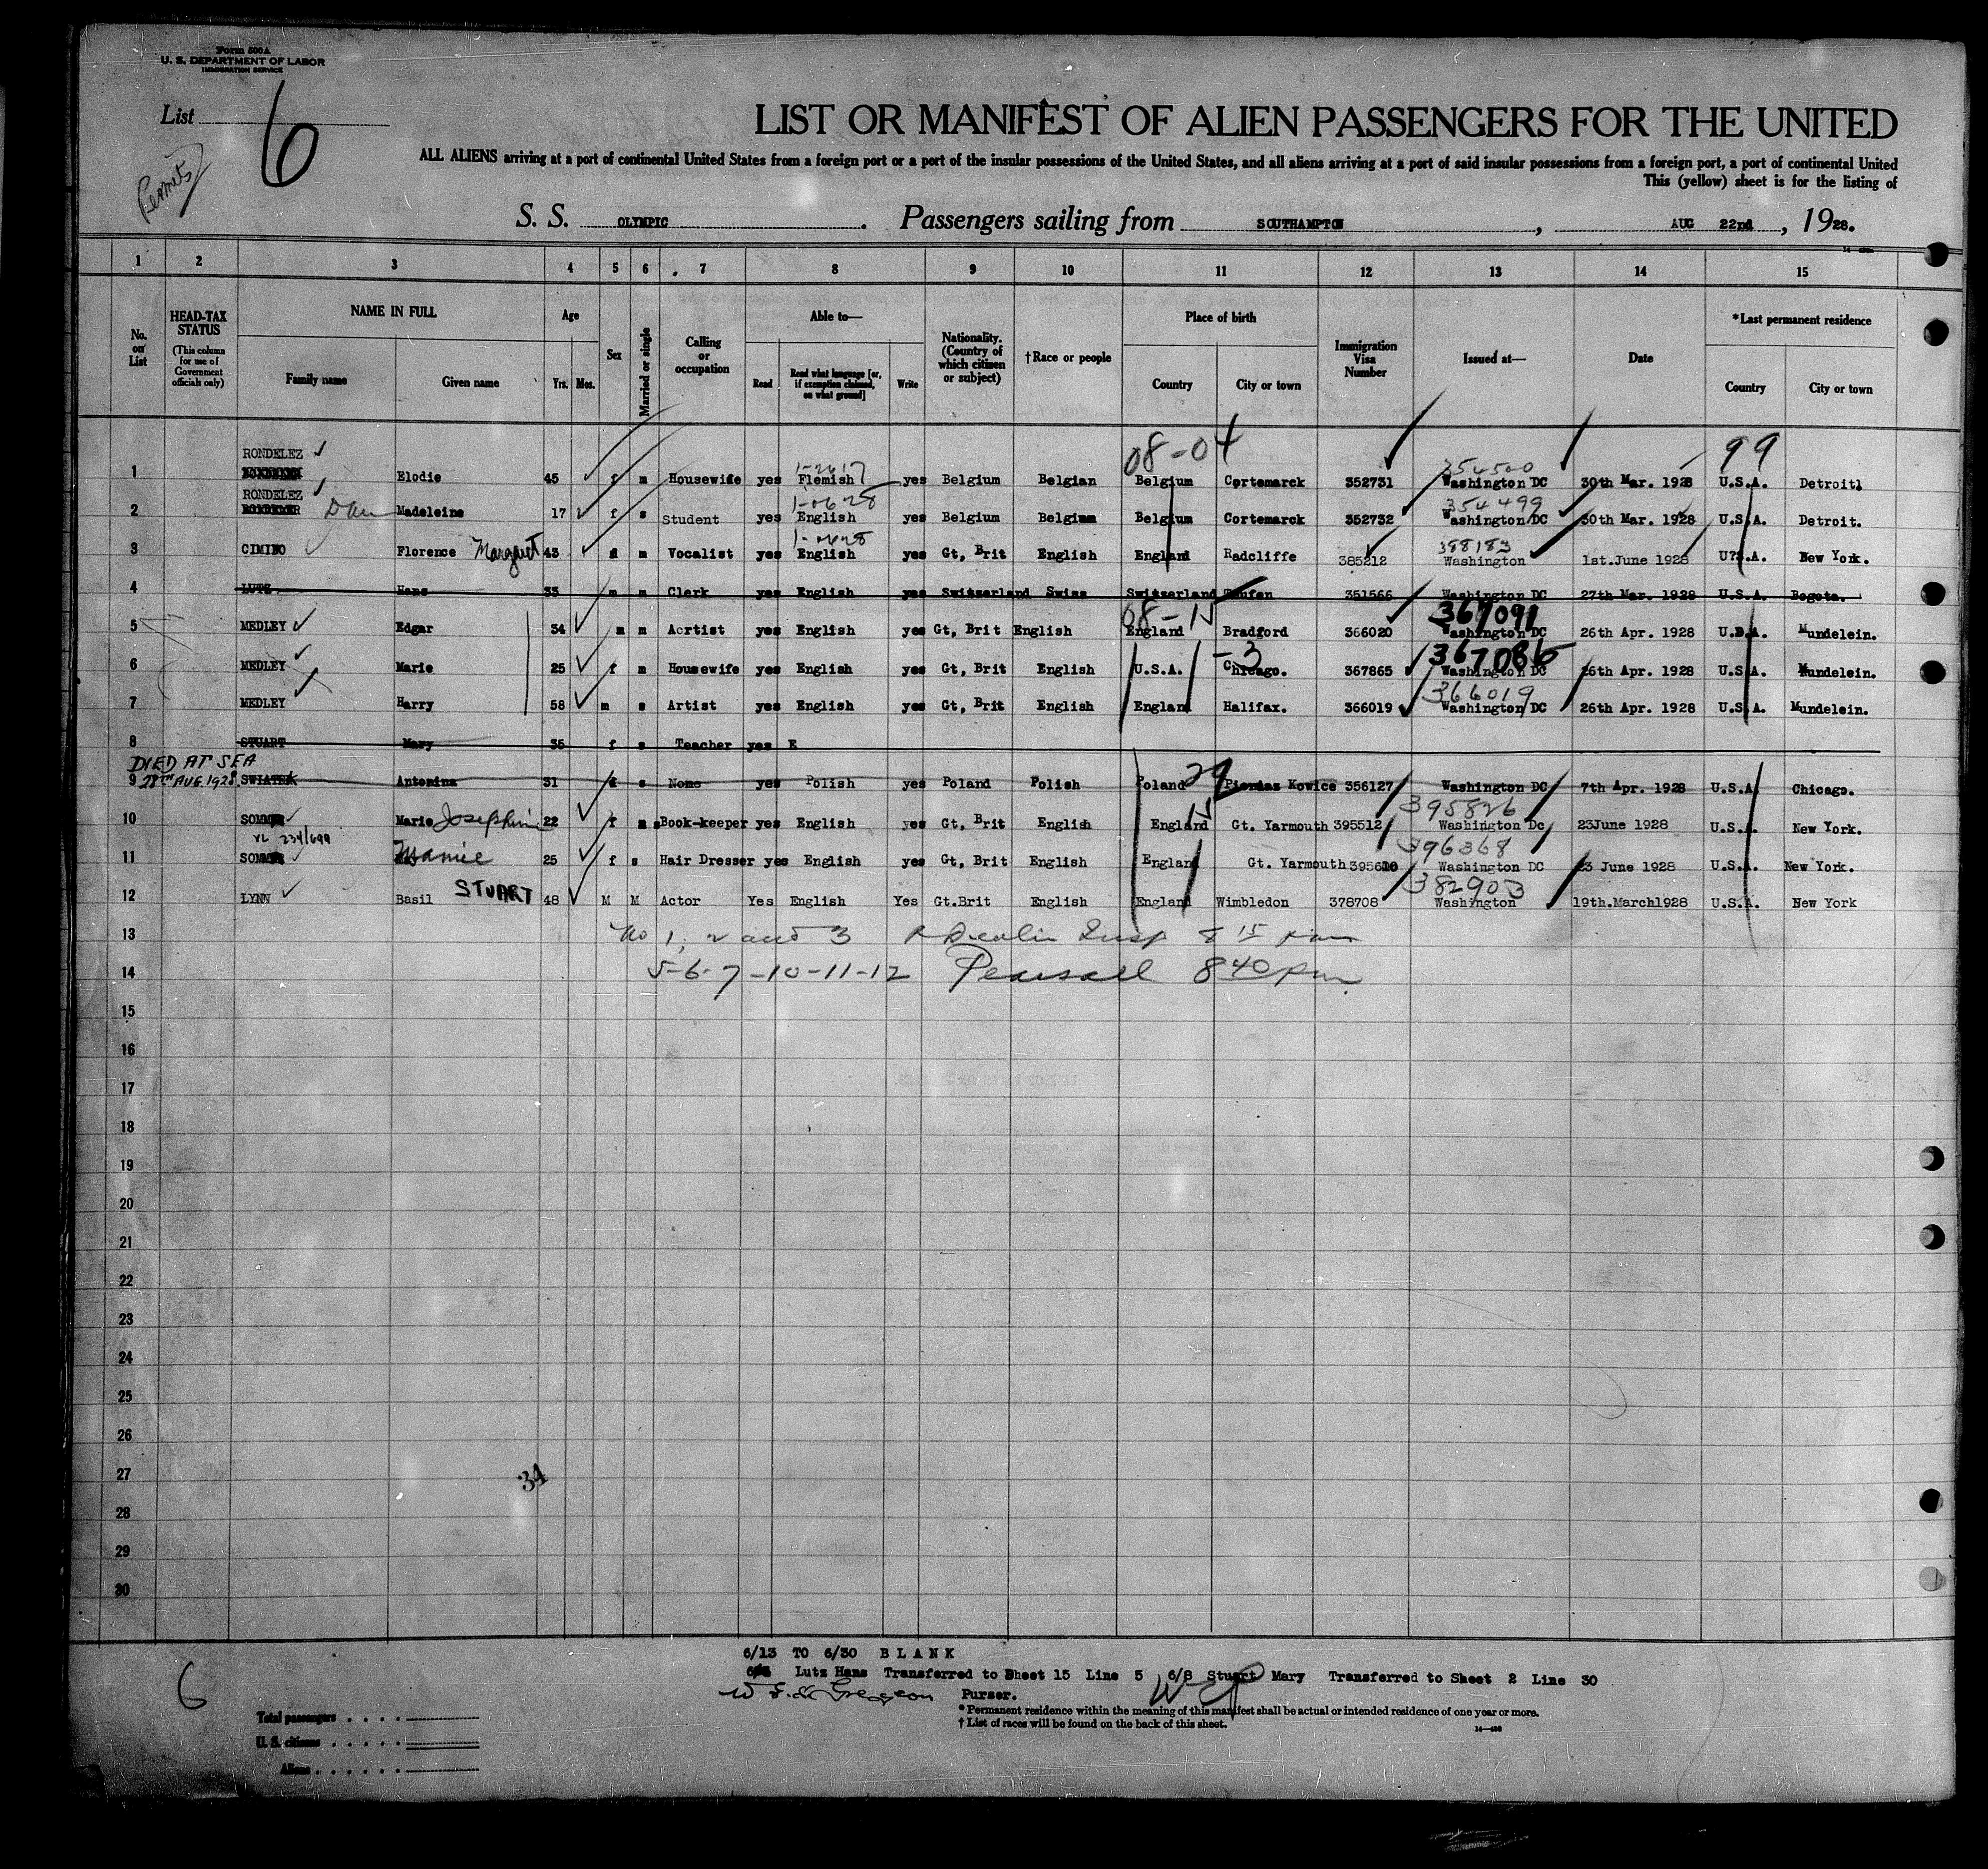 Form 500A
U. S. DEPARTMENT OF LABOR
IMMIGRATION SERVICE
List 6
Permits
LIST OR MANIFEST OF ALIEN PASSENGERS FOR THE UNITED
ALL ALIENS arriving at a port of continental United States from a foreign port or a port of the insular possessions of the United States, and all aliens arriving at a port of said insular possessions from a foreign port, a port of continental United
This (yellow) sheet is for the listing of
S. S. OLYMPIC. Passengers sailing from SOUTHAMPTON, AUG 22nd, 1928.
1 2 3 4 5 6 7 8 9 10 11 12 13 14 15
No. on List
HEAD-TAX STATUS (This column for use of Government officials only)
NAME IN FULL
Family name
Given name
Age
Yrs. Mos.
Sex
Married or single
Calling or occupation
Able to—
Read
Read what language [or, if exemption claimed, on what ground]
Write
Nationality. (Country of which citizen or subject)
†Race or people
Place of birth
Country
City or town
Immigration Visa Number
Issued at—
Date
*Last permanent residence
Country
City or town
RONDELEZ 08-04 99
1-2617 354500
1 Elodie 45 f m Housewife yes Flemish yes Belgium Belgian Belgium Cortemarck 352731 Washington DC 30th Mar. 1928 U.S.A. Detroit
RONDELEZ 1-0628 354499
2 Madeleine 17 f s Student yes English yes Belgium Belgium Belgium Cortemarck 352732 Washington DC 30th Mar. 1928 U.S.A. Detroit.
1-0628 388183
3 CIMINO Florence Margaret 43 m Vocalist yes English yes Gt, Brit English England Radcliffe 385212 Washington 1st.June 1928 U?S.A. New York.
4 LUTZ Hans 33 m m Clerk yes English yes Switzerland Swiss Switzerland 351566 Washington DC 27th Mar. 1928 U.S.A. Bogota.
08-15 367091
5 MEDLEY Edgar 34 m m Acrtist yes English yes Gt, Brit English England Bradford 366020 Washington DC 26th Apr. 1928 U.S.A. Mundelein.
-3 367086
6 MEDLEY Marie 25 f m Housewife yes English yes Gt, Brit English U.S.A. Chicago. 367865 Washington DC 26th Apr. 1928 U.S.A. Mundelein.
366019
7 MEDLEY Harry 58 m s Artist yes English yes Gt, Brit English England Halifax. 366019 Washington DC 26th Apr. 1928 U.S.A. Mundelein.
8 STUART Mary 35 f s Teacher yes E
DIED AT SEA
28TH AUG. 1928
9 SWIATEK Antonina 31 f s None yes Polish yes Poland Polish Poland 29 Kowice 356127 Washington DC 7th Apr. 1928 U.S.A Chicago.
15 395826
10 Marie Josephine 22 f s Book-keeper yes English yes Gt, Brit English England Gt. Yarmouth 395512 Washington Dc 23June 1928 U.S.A. New York.
VL 234/699 396368
11 Mamie 25 f s Hair Dresser yes English yes Gt, Brit English England Gt. Yarmouth 395610 Washington DC 23 June 1928 U.S.A. New York.
382903
12 LYNN Basil STUART 48 M M Actor Yes English Yes Gt.Brit English England Wimbledon 378708 Washington 19th.March1928 U.S.A. New York
13 No 1, 2 and 3 Insp 8 15 pm
14 5-6-7-10-11-12 Pearsall 8 40 pm
15
16
17
18
19
20
21
22
23
24
25
26
27
34
28
29
30
6/13 TO 6/30 BLANK
Lutz Hans Transferred to Sheet 15 Line 5 6/8 Stuart Mary Transferred to Sheet 2 Line 30
6
Purser.
* Permanent residence within the meaning of this manifest shall be actual or intended residence of one year or more.
† List of races will be found on the back of this sheet.
14—436
Total passengers
U. S. citizens
Aliens